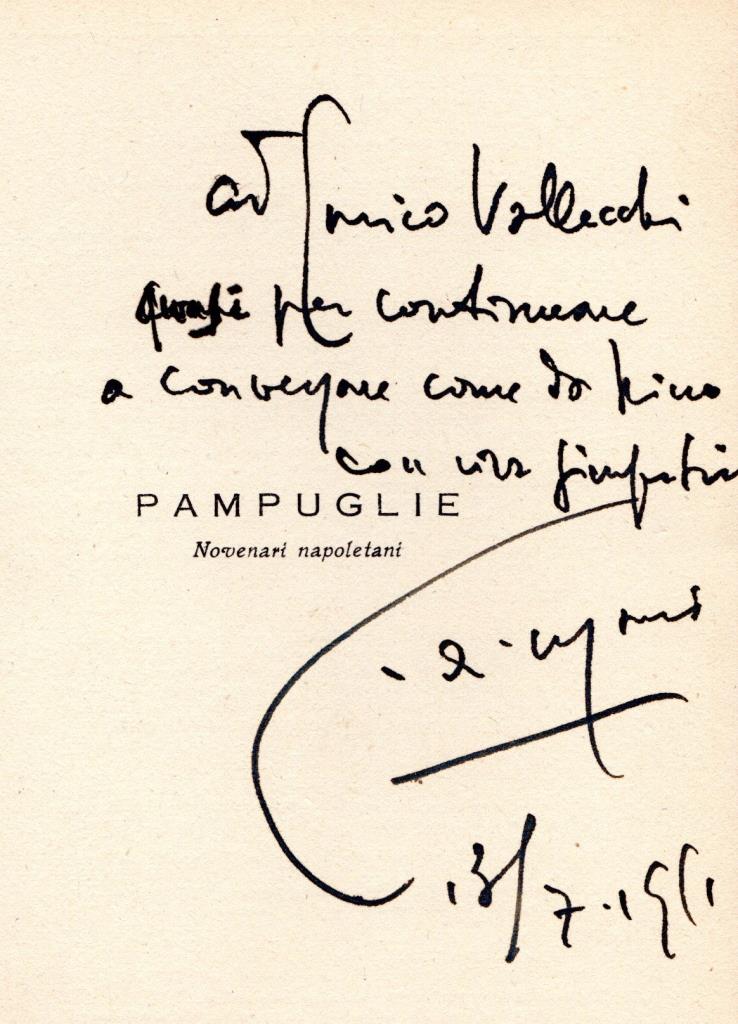 ad Enrico Vallecchi
quasi per continuare
a conversare come da vicino
con viva simpatia
PAMPUGLIE
Novenari napoletani
13/7.1951